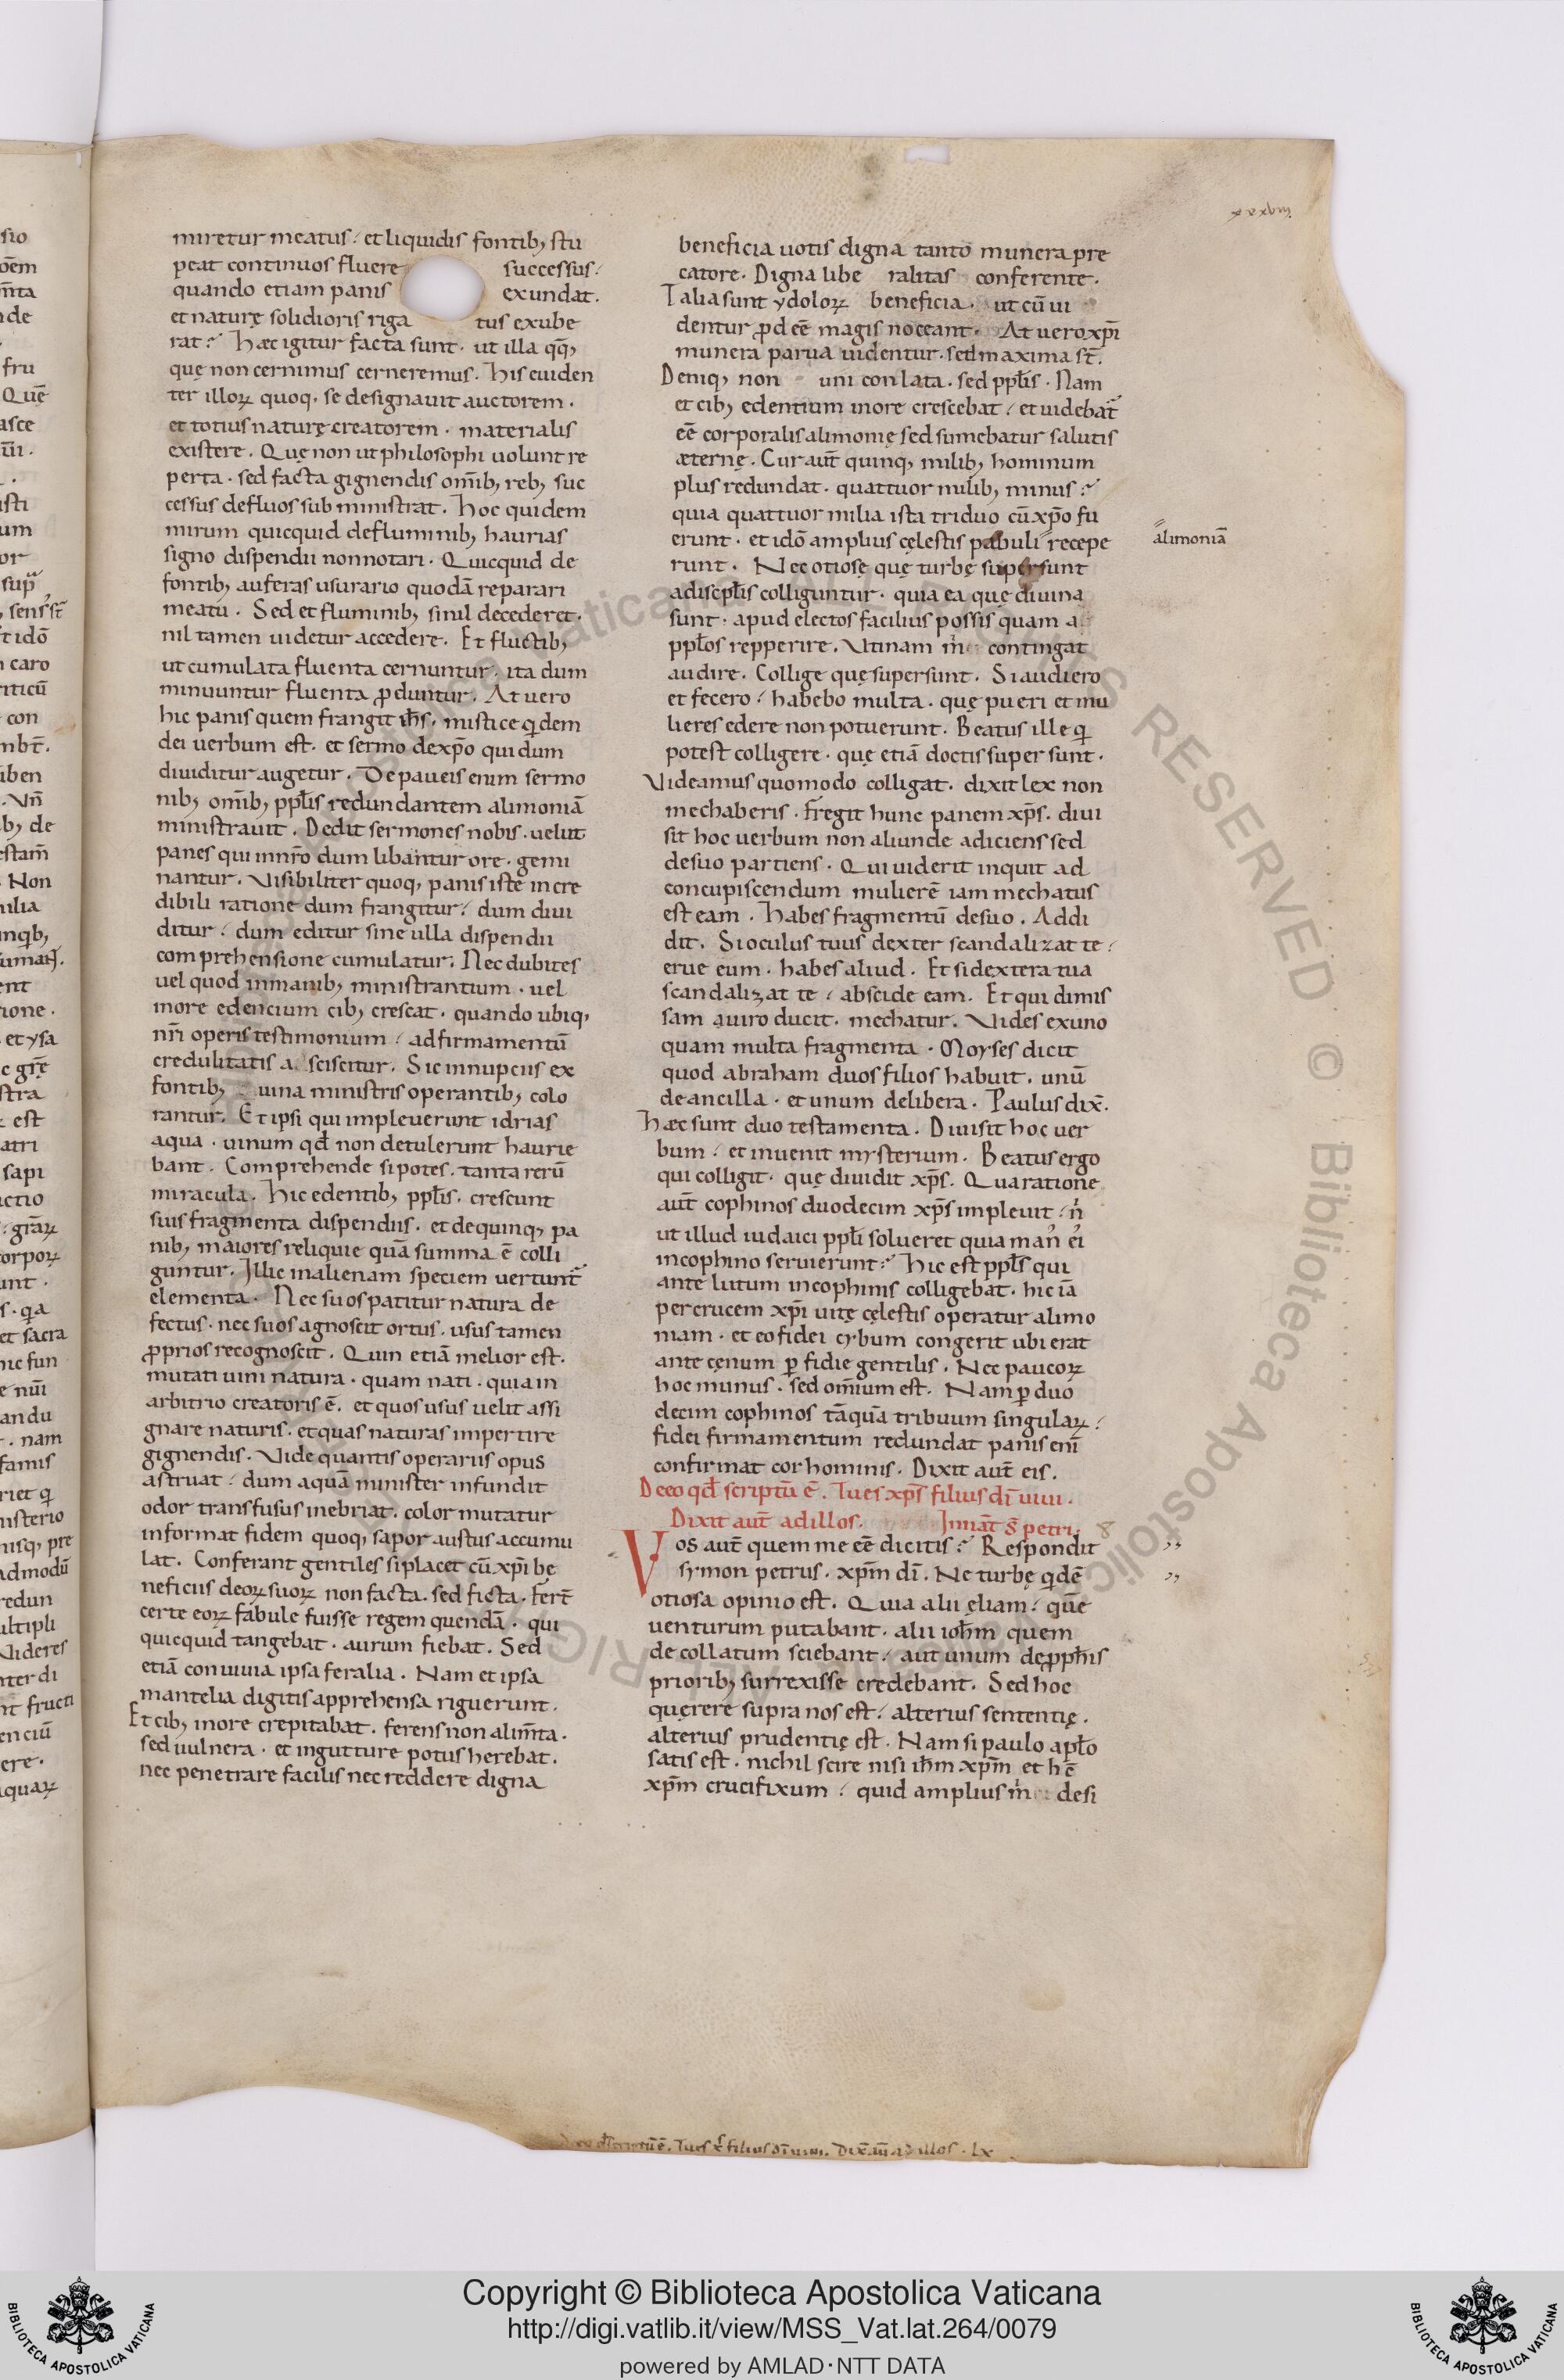 xxxviii
miretur meatus. et liquidis fontib; stu
peat continuos fluere successus.
quando etiam panis exundat.
et naturę solidioris riga tus exube
rat? Hæc igitur facta sunt. ut illa qq;
quę non cernimus cerneremus. His euiden
ter illoꝝ quoq. se designauit auctorem.
et totius naturę creatorem. materialis
existere. Quę non ut philosophi uolunt re
perta. sed facta gignendis om̄ib; reb; suc
cessus defluos sub ministrat. Hoc quidem
mirum quicquid defluminib; haurias
signo dispendii non notari. Quicquid de
fontib; auferas usurario quodā reparari
meatu. Sed et fluminib; simil decederet.
nil tamen uidetur accedere. Et fluctib;
ut cumulata fluenta cernuntur. ita dum
minuuntur fluenta ꝓduntur. At uero
hic panis quem frangit ih̄s. mistice qidem
dei uerbum est. et sermo dexp̄o qui dum
diuiditur augetur. De paucis enim sermo
nib; om̄ib; ppl̄is redundantem alimoniā
ministrauit. Dedit sermones nobis. uelut
panes qui inn̄ro dum libantur ore. gemi
nantur. Visibiliter quoq; panis iste incre
dibili ratione dum frangitur. dum diui
ditur. dum editur sine ulla dispendii
comprehensione cumulatur. Nec dubites
uel quod inmanib; ministrantium. uel
more edencium cib; crescat. quando ubiq;
nr̄i operis testimonium. adfirmamentū
credulitatis a sciscitur. Sic innupciis ex
fontib; uina ministris operantib; colo
rantur. Et ipsi qui impleuerunt idrias
aqua. uinum qd̄ non detulerunt haurie
bant. Comprehende si potes. tanta rerū
miracula. Hic edentib; ppl̄is. crescunt
suis fragmenta dispendiis. et dequinq; pa
nib; maiores reliquie quā summa ē colli
guntur. Illic inalienam speciem uertunt̄
elementa. Nec suos patitur natura de
fectus. nec suos agnoscit ortus. usus tamen
ꝓprios recognoscit. Quin etiā melior est.
mutati uini natura. quam nati. quia in
arbitrio creatoris ē. et quos usus uelit assi
gnare naturis. et quas naturas impertire
gignendis. Vide quantis operariis opus
astruat. dum aquā minister infundit
odor transfusus inebriat. color mutatur
informat fidem quoq; sapor austus accumu
lat. Conferant gentiles si placet cū xp̄i bę
neficiis deoꝝ suoꝝ non facta. sed ficta. Fert̄
certe eoꝝ fabule fuisse regem quendā. qui
quicquid tangebat. aurum fiebat. Sed
etiā conuiuia ipsa feralia. Nam et ipsa
mantelia digitis apprehensa riguerunt.
Et cib; inore crepitabat. ferens non alim̄ta.
sed uulnera. et ingutture potus herebat.
nec penetrare facilis nec reddere digna
beneficia uotis digna tanto munera pre
catore. Digna libe ralitas conferente.
Talia sunt ydoloꝝ beneficia. ut cū ui
dentur ꝓdeē magis noceant. At uero xp̄i
munera parua uidentur. sed maxima st̄.
Deniq; non uni conlata. sed ppl̄is. Nam
et cib; edentium inore crescebat. et uidebat̄
eē corporalis alimonię sed sumebatur salutis
æternę. Cur aut̄ quinq; milib; hominum
plus redundat. quattuor milib; minus?
quia quattuor milia ista triduo cū xp̄o fu
erunt. et idō amplius cęlestis pabuli recepe
runt. Nec otiosę quę turbę supersunt
adiscpl̄is colliguntur. quia ea quę diuina
sunt. apud electos facilius possis quam a
ppl̄os repperire. Vtinam m̄ contingat
audire. Collige quę supersunt. Si audiero
et fecero. habebo multa. quę pueri et mu
lieres edere non potuerunt. Beatus ille qi
potest colligere. quę etiā doctis super sunt.
Videamus quomodo colligat. dixit lex non
mechaberis. Fregit hunc panem xp̄s. diui
sit hoc uerbum non aliunde adiciens sed
desuo partiens. Qui uiderit inquit ad
concupiscendum mulierē iam mechatus
est eam. Habes fragmentū desuo. Addi
dit. Si oculus tuus dexter scandalizat te.
erue eum. habes aliud. Et si dextera tua
scandalizat te. abscide eam. Et qui dimis
sam auiro ducit. mechatur. Vides exuno
quam multa fragmenta. Moyses dicit
quod abraham duos filios habuit. unū
de ancilla. et unum delibera. Paulus dix̄.
Hæc sunt duo testamenta. Diuisit hoc uer
bum. et inuenit mysterium. Beatus ergo
qui colligit. quę diuidit xp̄s. Qua ratione
aut̄ cophinos duodecim xp̄s impleuit. n̄
ut illud iudaici ppl̄i solueret quia man᾽ ei᾽
incophino seruierunt? Hic est ppl̄s qui
ante lutum incophinis colligebat. hic iā
percrucem xp̄i uitę cęlestis operatur alimo
niam. et eo fidei cybum congerit ubi erat
ante cęnum ꝑfidie gentilis. Nec paucoꝝ
hoc munus. sed om̄ium est. Nam ꝑ duo
decim cophinos tāquā tribuum singulaꝝ.
fidei firmamentum redundat panis eni
confirmat cor hominis. Dixit aut̄ eis.
De eo qd̄ scriptū ē. Tu es xp̄s filius dī uiui.
Dixit aut̄ ad illos. In nat̄ s̄ petri. 8
Vos aut̄ quem me eē dicitis? Respondit
symon petrus. xp̄m dī. Nc turbę qidē
otiosa opinio est. Quia alii ęliam. quē
uenturum putabant. alii ioh̄m quem
decollatum sciebant. aut unum deꝓph̄is
priorib; surrexisse credebant. Sed hoc
quęrere supra nos est. alterius sententię.
alterius prudentię est. Nam si paulo apl̄o
satis est. nichil scire nisi ih̄m xp̄m et h̄c
xp̄m crucifixum. quid amplius m̄ desi
alimoniā
scriptū ē. Tu es xp̄s filius dī uiui. Dix̄ aū ad illos. Lx
Copyright © Biblioteca Apostolica Vaticana
http://digi.vatlib.it/view/MSS_Vat.lat.264/0079
powered by AMLAD·NTT DATA
BIBLIOTECA APOSTOLICA VATICANA
BIBLIOTECA APOSTOLICA VATICANA